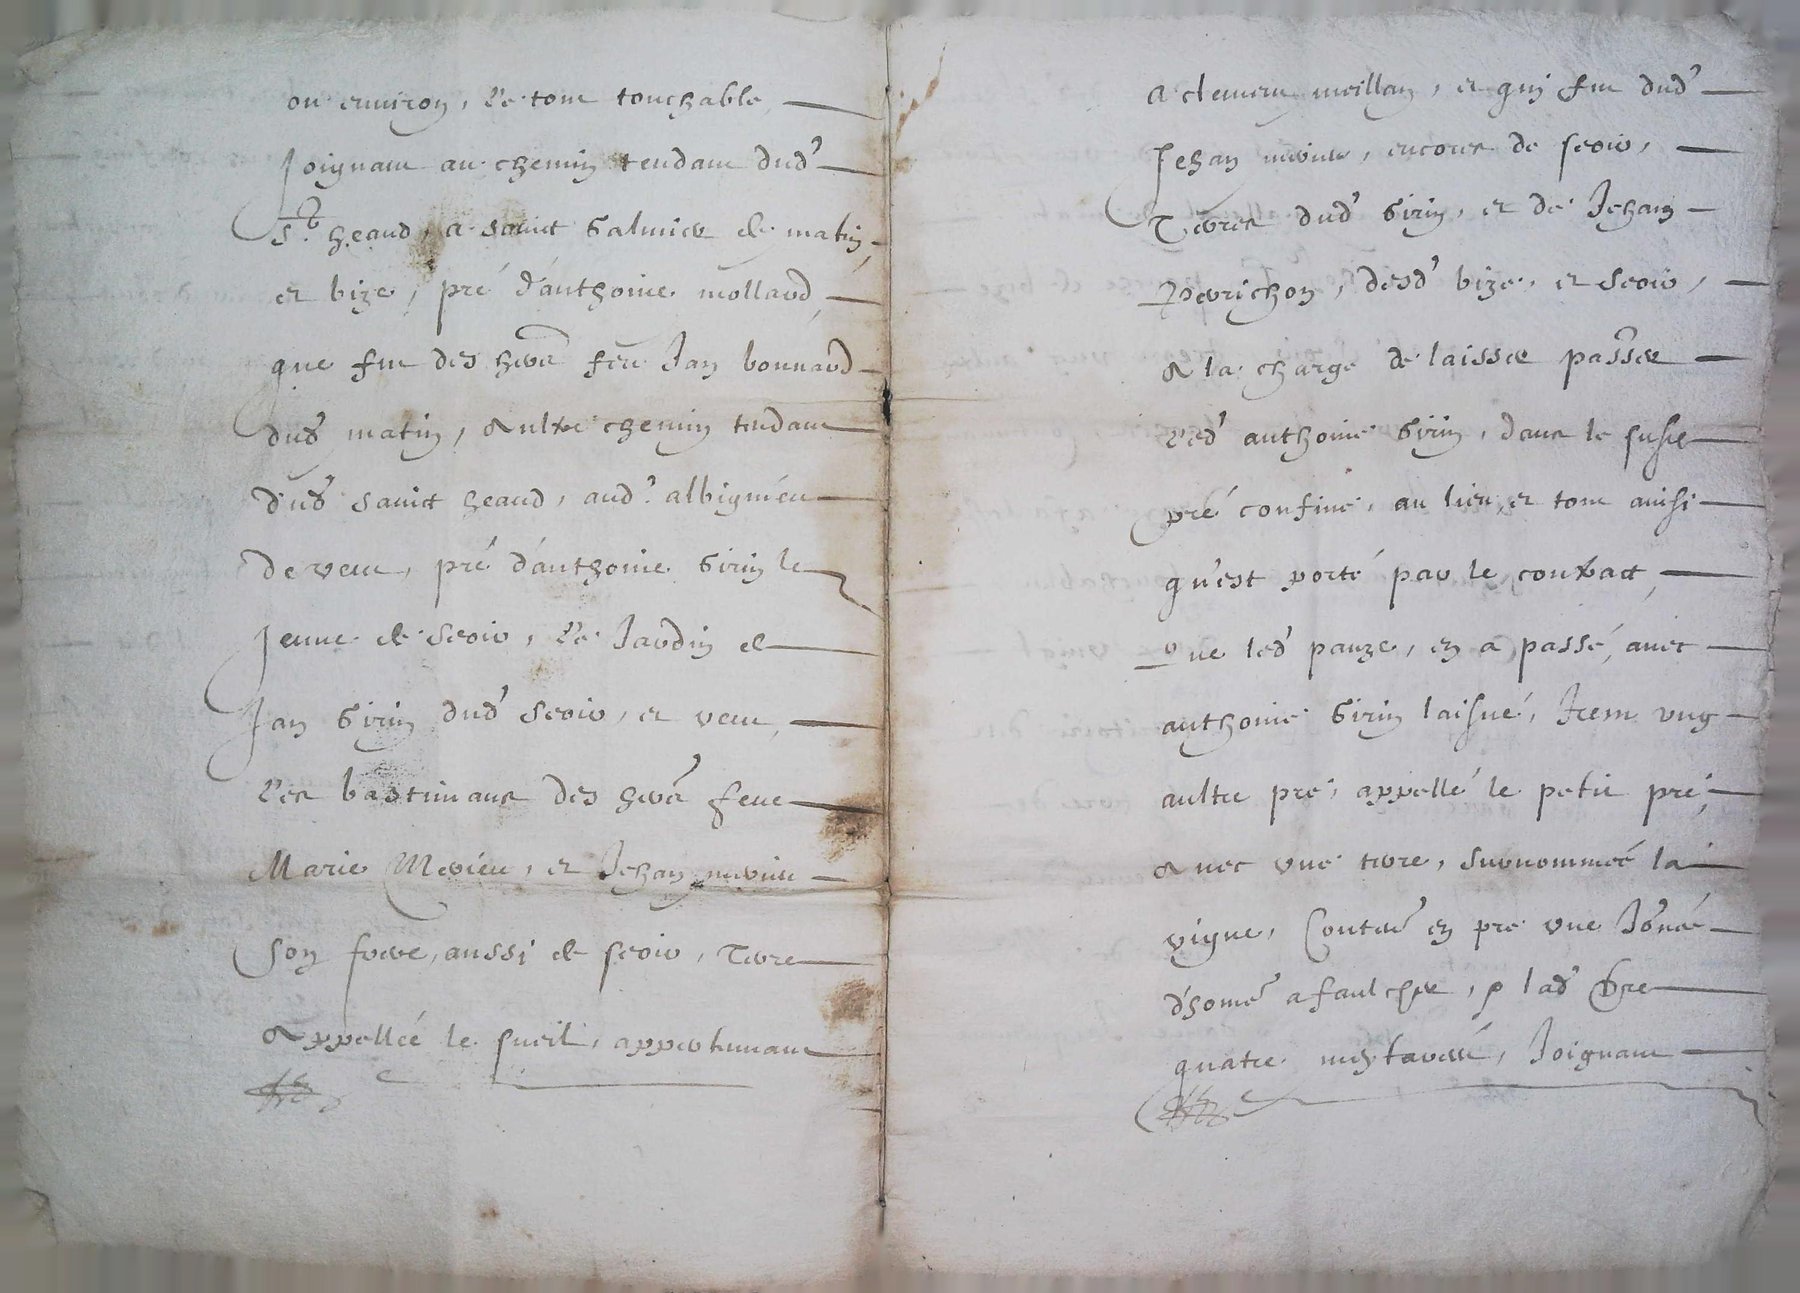 ou environ, le tout touchable,
Joignant au chemin tendant dud'
St heand, a sainct Galmier de matin,
et bize, pré d'anthoine mollard,
que fut des hers feu Jan bonnard
dud' matin, aultre chemin tendant
dud' sainct heand, aud' albignieu
de vent, pré d'anthoine Girin le
Jeune de seoir, le Jardin de
Jan Girin dud' seoir, et vent,
les bastimans des hers feue
Marie Merieu, et Jehan
son frere, aussi de seoir, Terre
Appellée le sueil, appertenant
A clement meillan, et qui fut dud'
Jehan, encores de seoir,
Terres dud' Girin, et de Jehan
Perrichon, desd' bize, et seoir,
A la charge de laisser passer
led' anthoine Girin, dans le susd
pré confiné, au lieu, et tout ainsi
qu'est porté par le contract,
Que led' pauze, en a passé, avec
anthoine Girin laisné, Item ung
aultre pré, appellé le petit pré,
Avec une terre, surnommée la
vigne, Content en pré une Jornée
d'home a faulcher, p lad' terre
quatre, Joignant